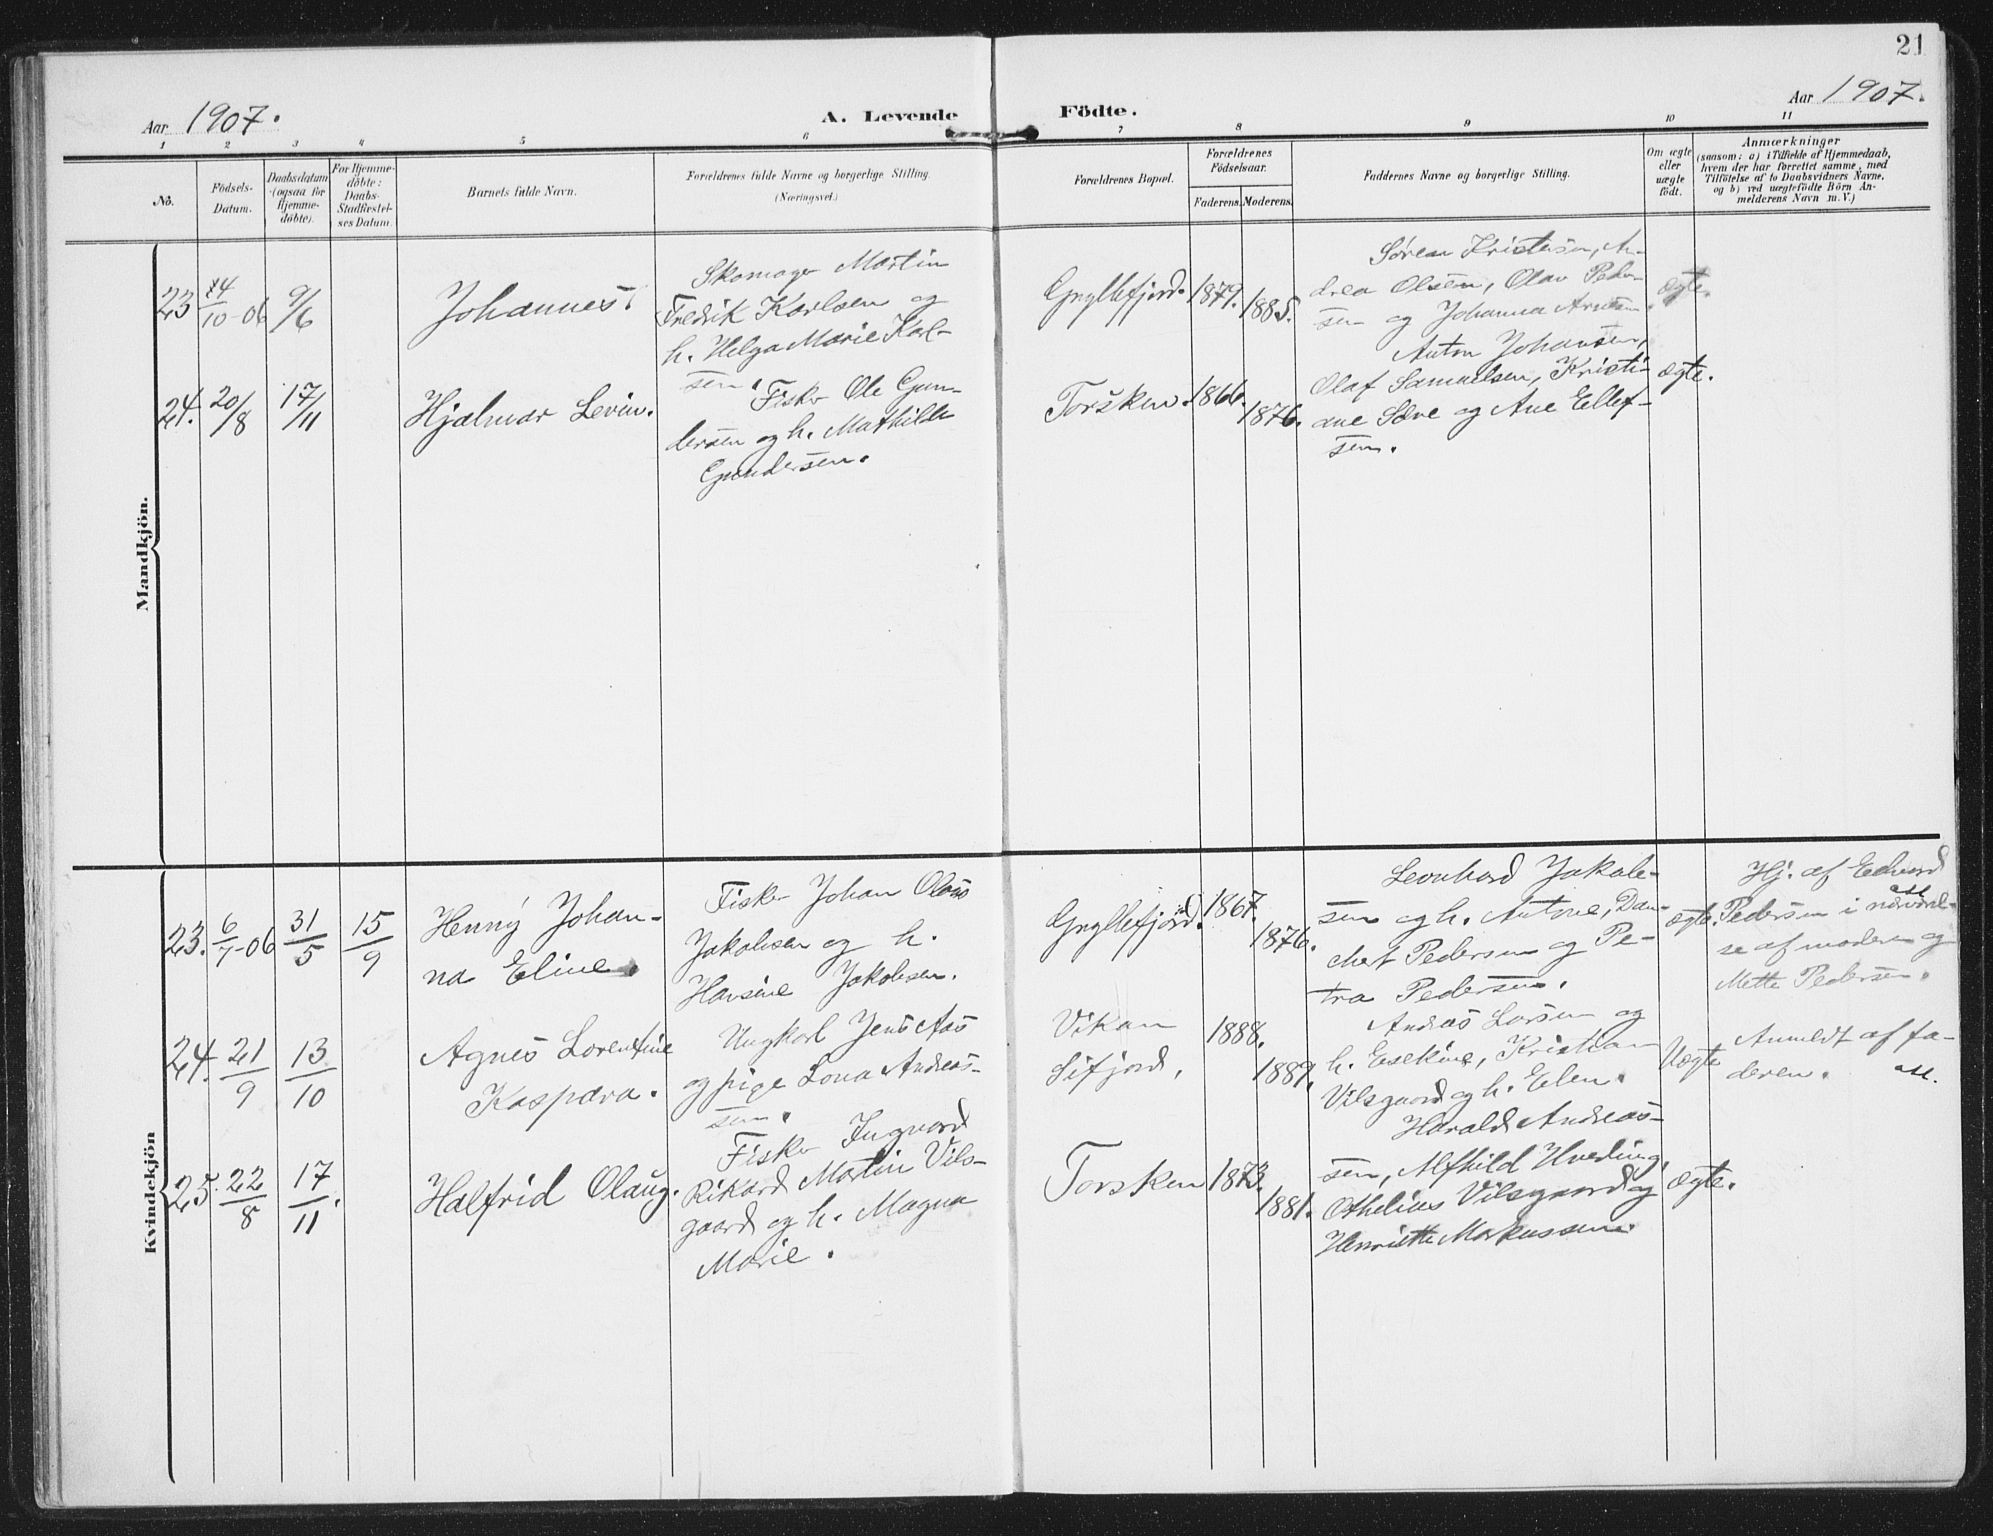 21
Aar 1907.
A. Levende Födte.
Aar 1907.
1 2 3 4 5 6 7 8 9 10 11
No.
Födsels-
Datum.
Daabsdatum
(ogsaa for
Hjemme-
döbte).
For Hjemme-
döbte:
Daabs-
Stadfæstel-
ses Datum.
Barnets fulde Navn.
Forældrenes fulde Navne og borgerlige Stilling.
(Næringsvei.)
Forældrenes Bopæl.
Forældrenes
Födselsaar.
Faderens. Moderens.
Faddernes Navne og borgerlige Stilling.
Om ægte
eller
uægte
födt.
Anmærkninger
(saasom: a) i Tilfælde af Hjemmedaab,
hvem der har forrettet samme, med
Tilföielse af to Daabsvidners Navne,
og b) ved uægtefödte Börn An-
melderens Navn m. V.)
Mandkjön.
23 14/10-06 9/6
Johannes
Skomager Martin
Fredrik Karlsen og
h. Helga Marie Karl-
sen.
Gryllefjord. 1879. 1885.
Søren Kristensen, An-
drea Olsen, Olav Peder-
sen og Johanna Arntsen.
ægte.
24. 20/8 17/11
Hjalmar Levin.
Fisker Ole Gun-
dersen og h. Mathilde
Gundersen.
Torsken. 1866. 1876.
Anton Johansen,
Olaf Samuelsen, Kristi-
ane Sæve og Ane Ellef-
sen.
ægte.
Kvindekjön
23. 6/7-06 31/5 15/9
Henny Johan-
na Eline.
Fisker Johan Olaus
Jakobsen og h.
Hansine Jakobsen.
Gryllefjord. 1867. 1876.
Leonhard Jakob-
sen og h. Antone, Dan-
chert Pedersen og Pe-
tra Pedersen.
ægte.
Hj. af Edvard
Pedersen i nærværel-
se af moderen og
Mette Pedersen.
24. 21/9 13/10
Agnes Lorentine
Kaspara.
Ungkarl Jens Aas
og pige Lona Andreas-
sen.
Vikan
Sifjord, 1888. 1889.
Andreas Larsen og
h. Esekine, Kristian
Vilsgaard og h. Elen.
Uægte
Anmeldt af fa-
deren.
25. 22/8 17/11.
Halfrid Olaug.
Fisker Ingvard
Rikard Martin Vils-
gaard og h. Magna
Marie.
Torsken 1873. 1881.
Harald Andreas-
sen, Alfhild Hveding,
Othelius Vilsgaard og
Henriette Markussen.
ægte.